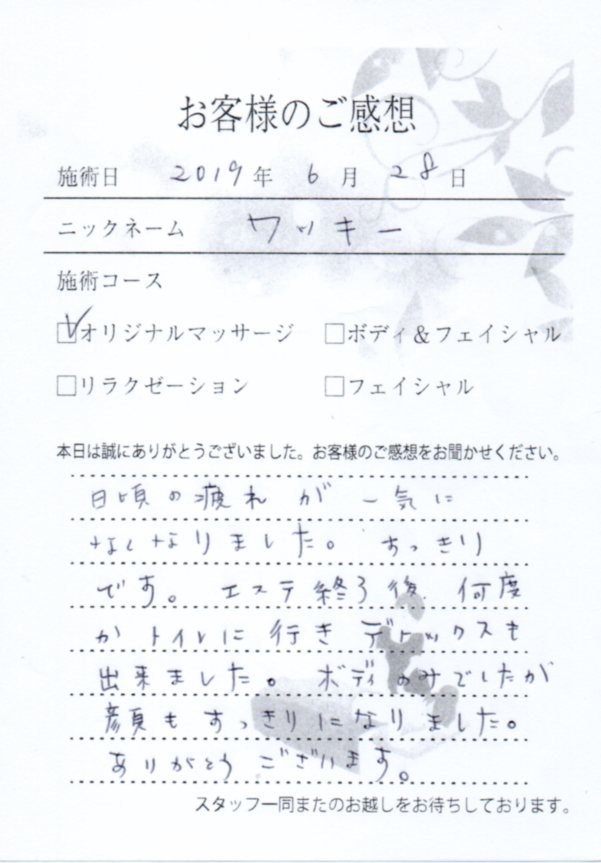 お客様のご感想
施術日 2019年 6月 28日
ニックネーム ワッキー
施術コース
☑オリジナルマッサージ □ボディ＆フェイシャル
□リラクゼーション □フェイシャル
本日は誠にありがとうございました。お客様のご感想をお聞かせください。
日頃の疲れが一気に
なくなりました。すっきり
です。エステ終了後 何度
かトイレに行きデトックスも
出来ました。ボディのみでしたが
顔もすっきりになりました。
ありがとうございます。
スタッフ一同またのお越しをお待ちしております。